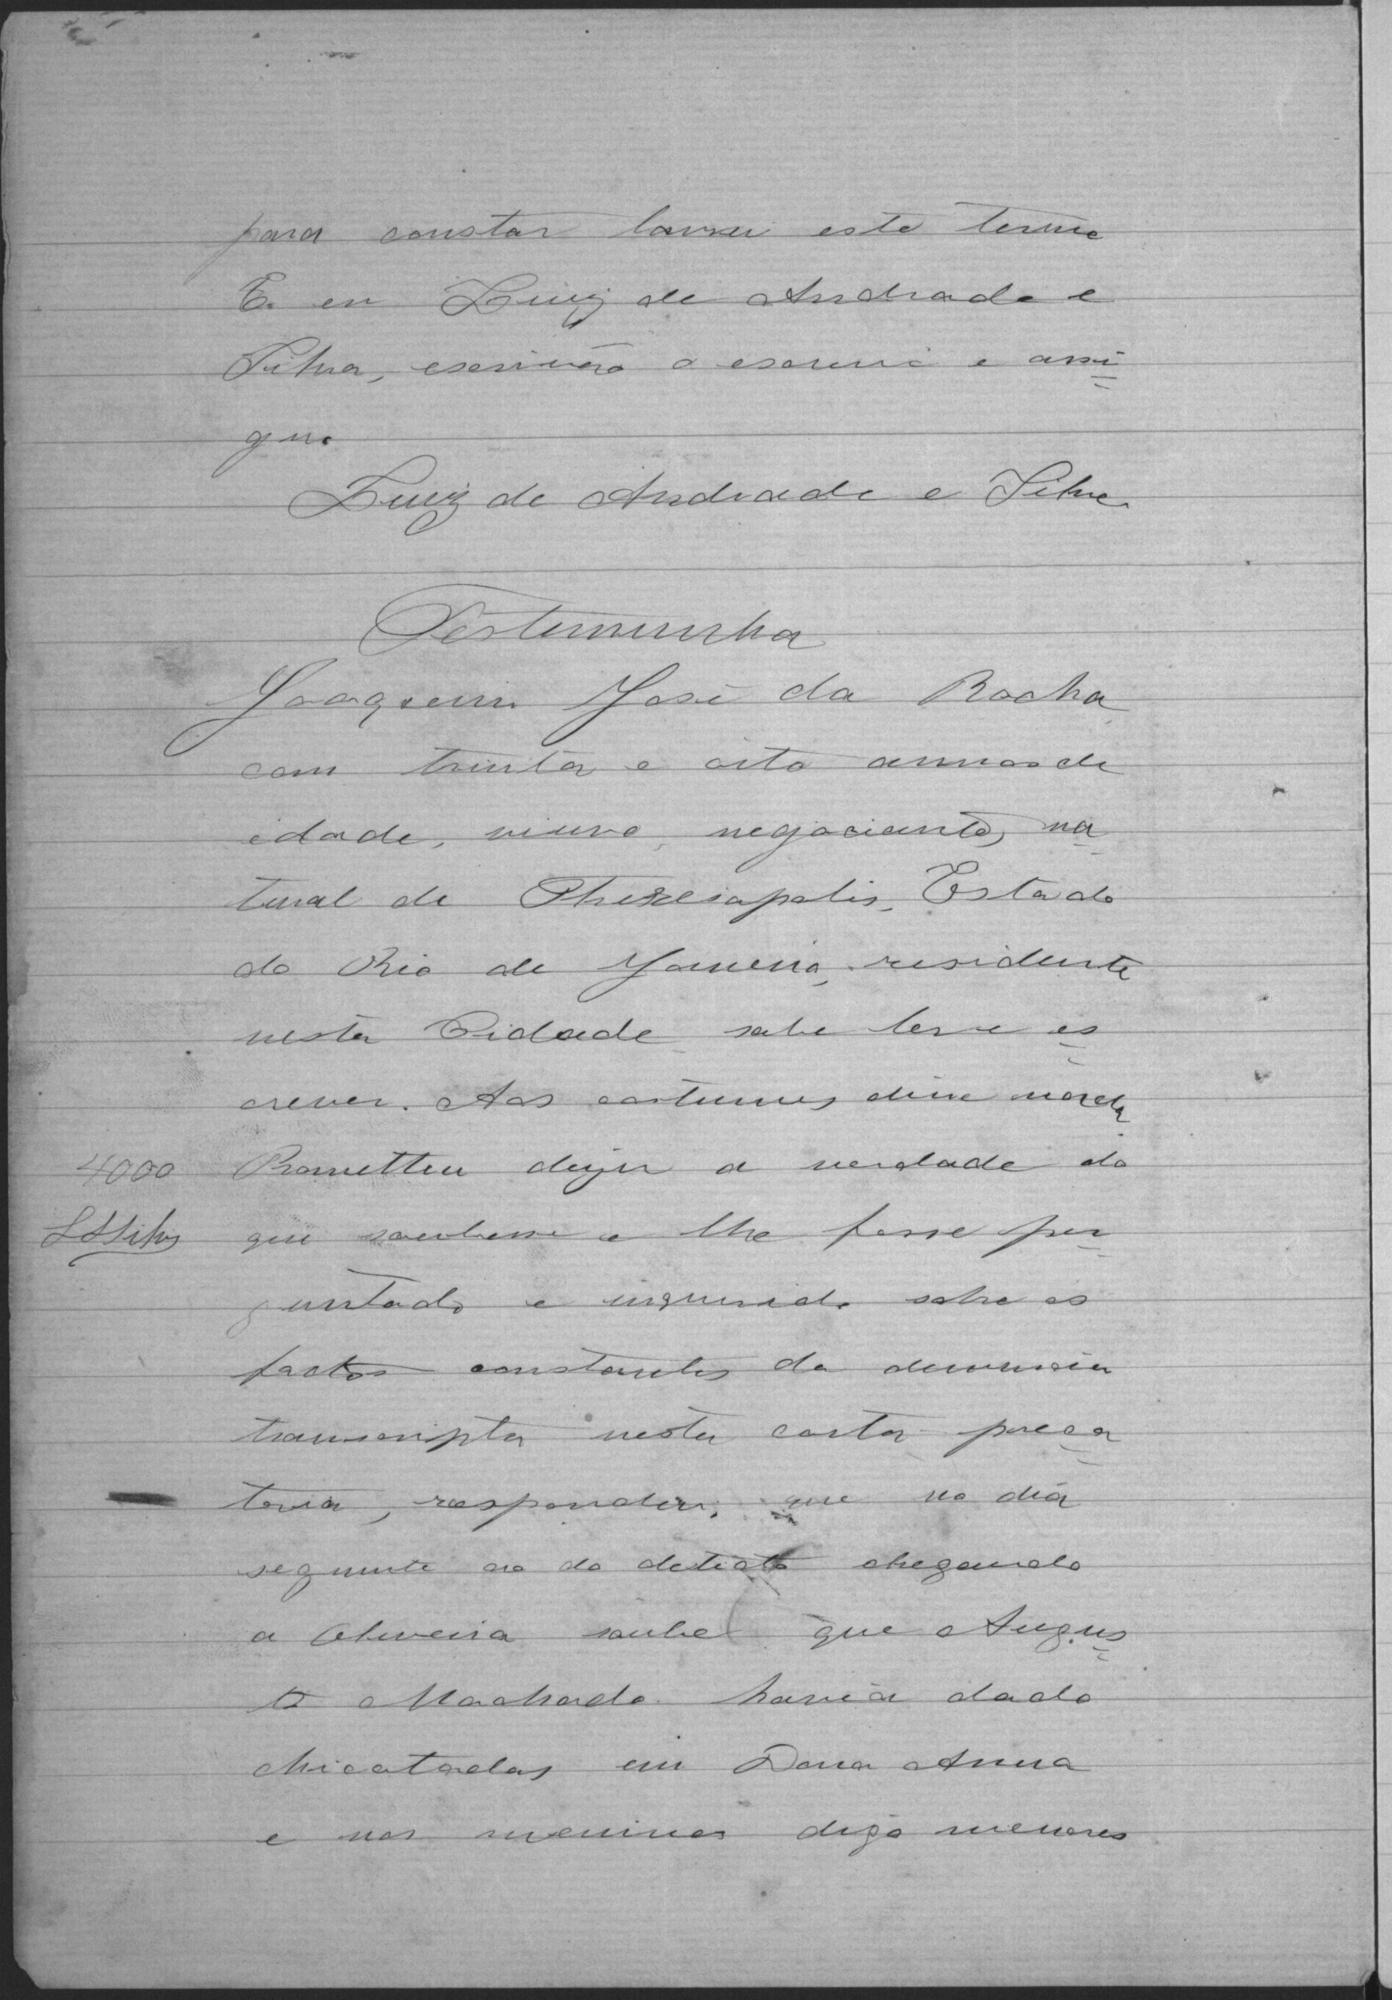 para constar lavrei este termo
E. eu Luiz de Andrade e
Silva, escrivão o escrevi e assi=
gno.
Luiz de Andrade e Silva
Testemunha
Joaquim José da Rocha
com trinta e oito annos de
idade, viuvo, negociante, na=
tural de Theresopolis, Estado
do Rio de Janeiro, residente
nesta Cidade sabe ler e es=
crever. Aos costumes disse nada
4000
Prometteu dizer a verdade do
que soubesse e lhe fosse per=
guntado e inquirido sobre os
factos constantes da denuncia
transcripta nesta carta preca=
toria, respondeu, que no dia
seguinte ao do delicto chegando
a Oliveira soube que Augus=
to Machado havia dado
chicotadas em Dona Anna
e nos meninos digo menores